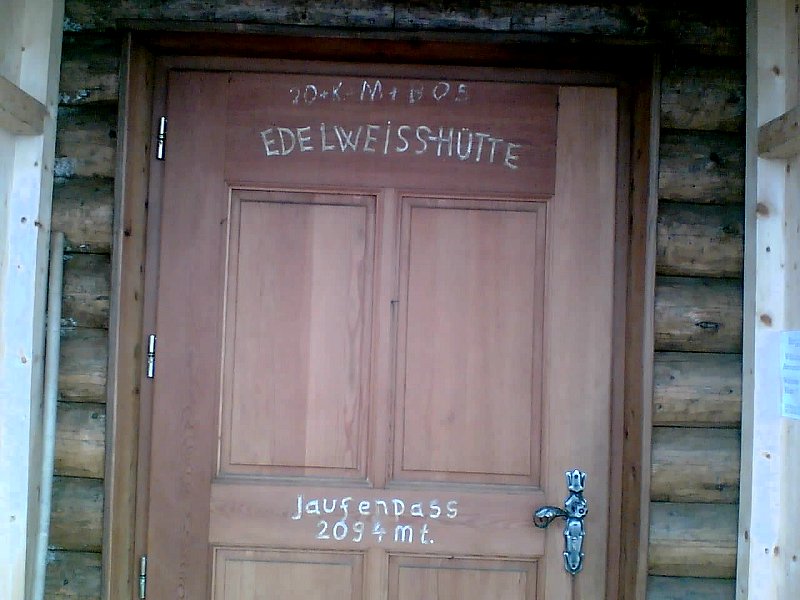 20+K+M+B 05
EDELWEISS-HÜTTE
Jaufenpass
2094 mt.